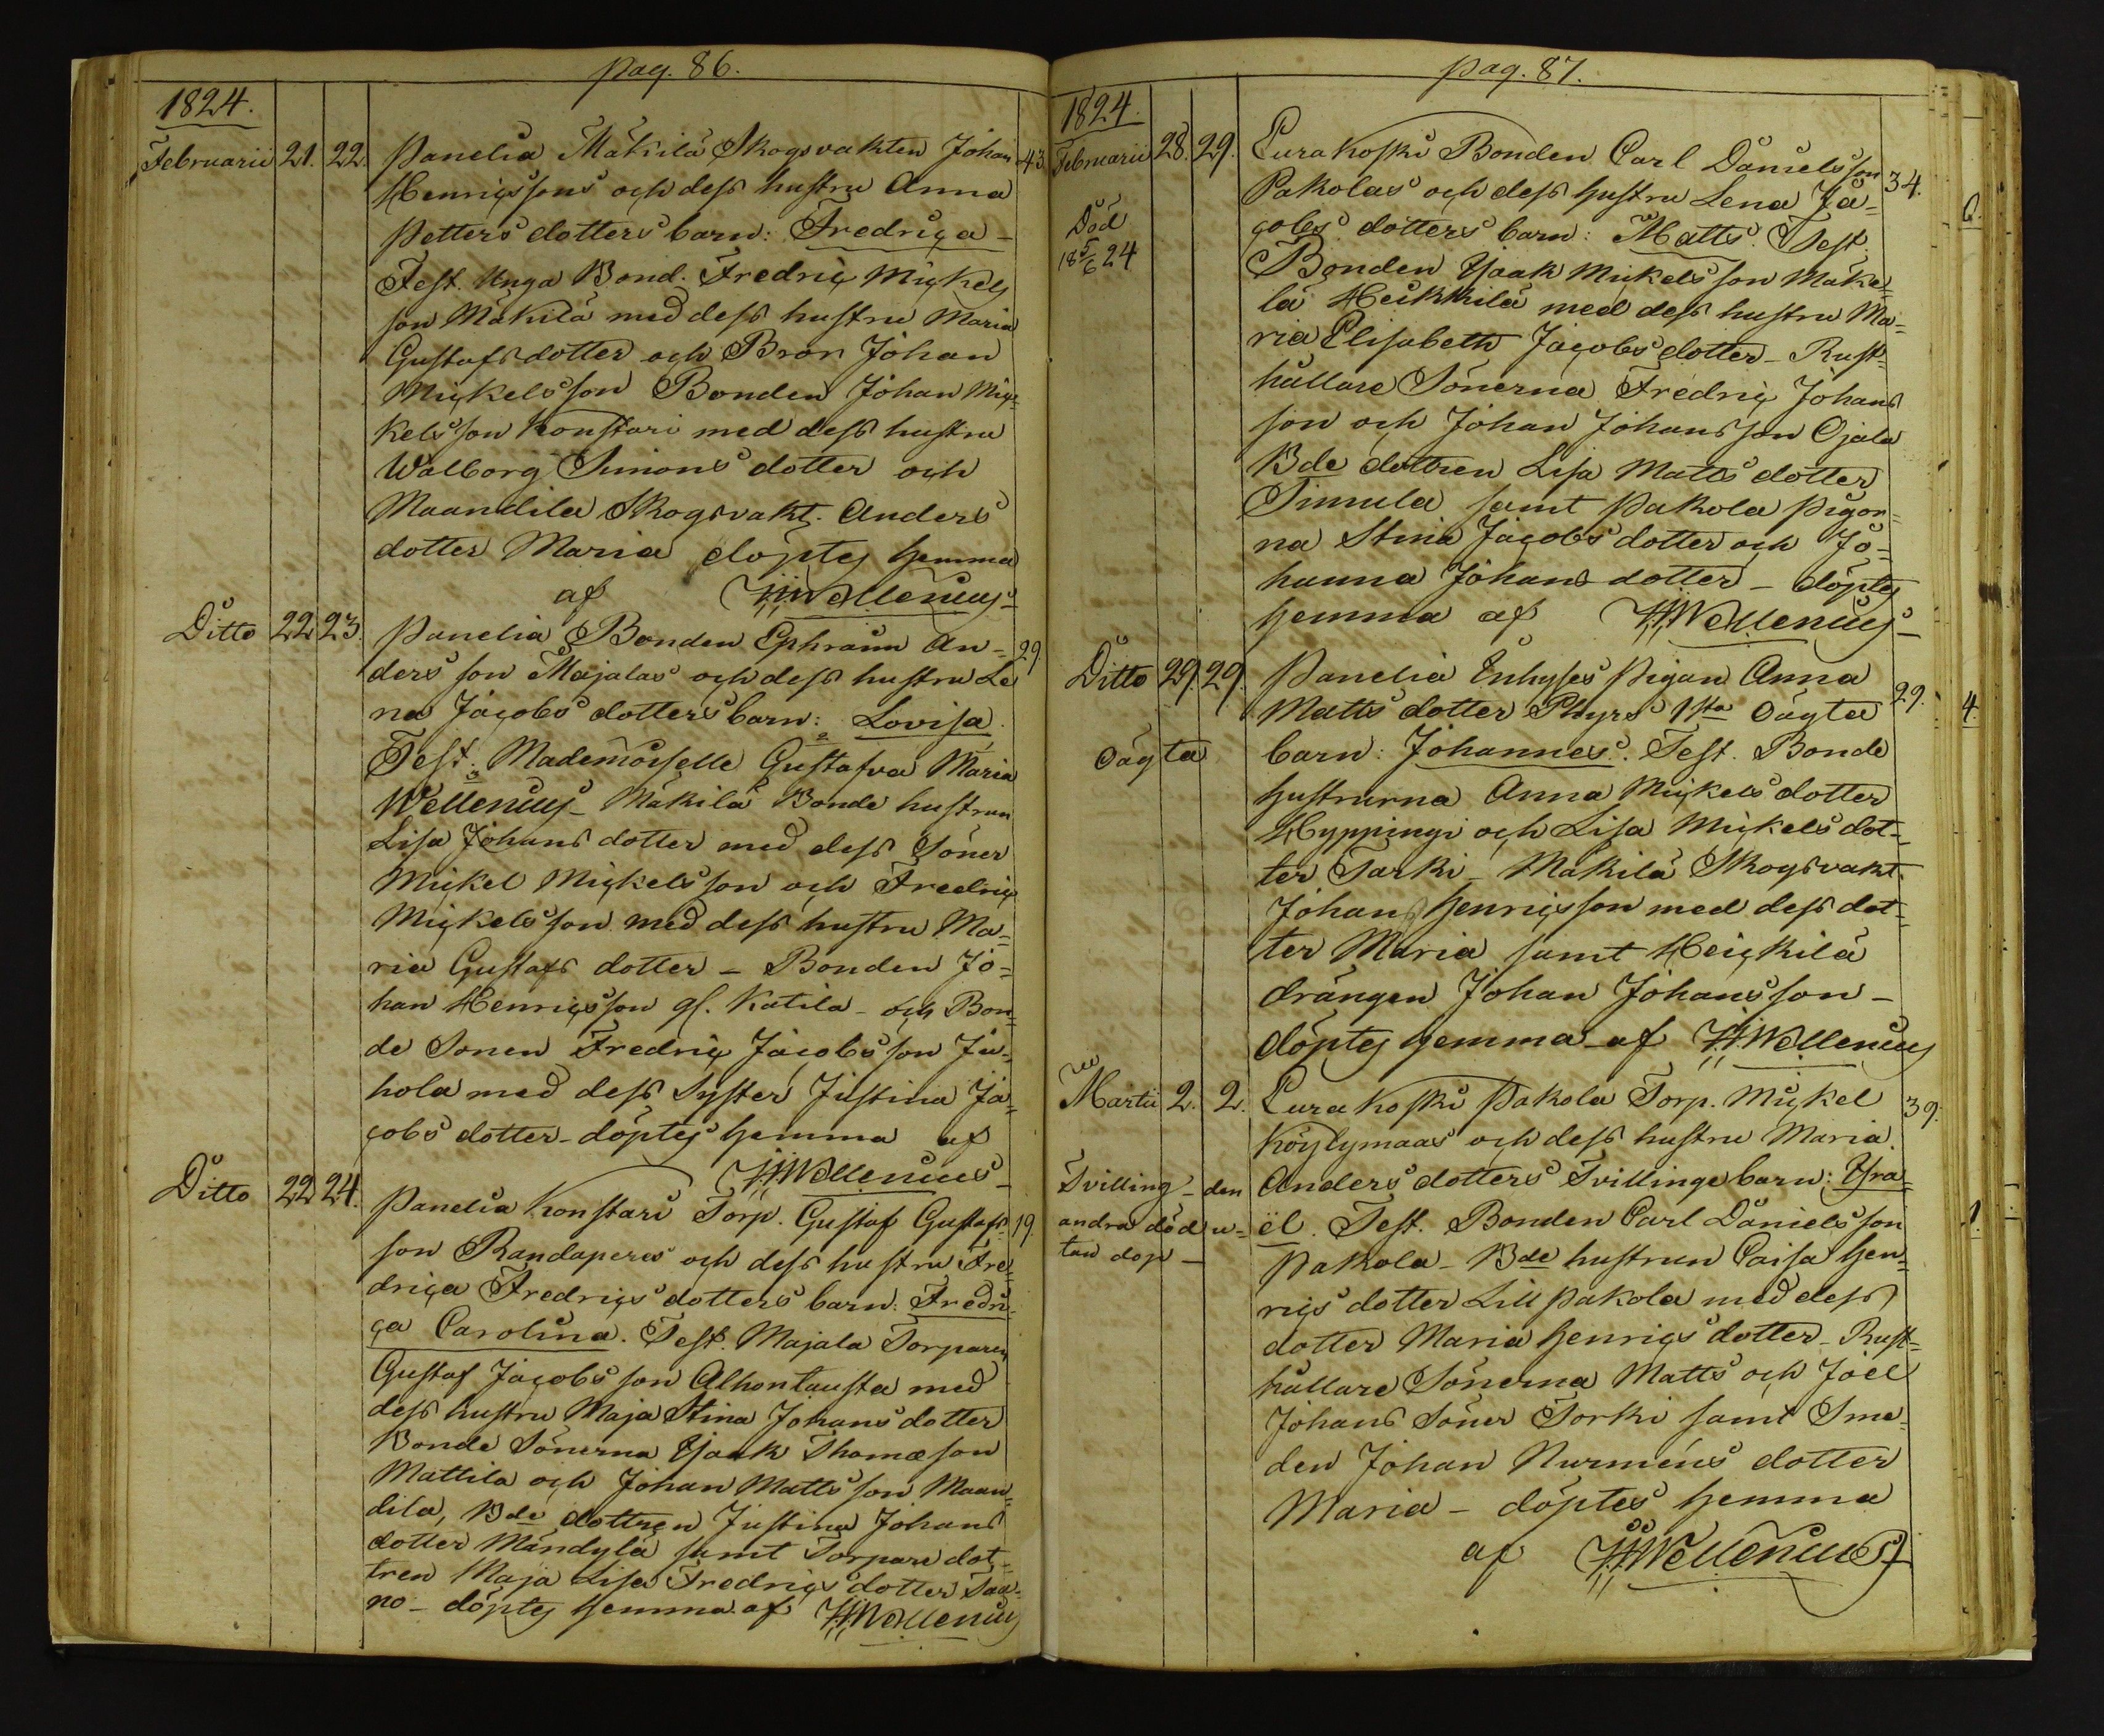 pag. 86.
1824.
Februarii 21. 22. Panelia Mäkilä Skogsvakten Johan 43.
Henricssons och dess hustru Anna
Petters dotters barn: Fredrica _
Test. Unga Bond. Fredric Mickels
son Mäkilä med dess hustru Maria
Gustafs dotter och Bror Johan
Mickelsson Bonden Johan Mic=
kelsson Konstari med dess hustru
Walborg Simons dotter och
Maandila Skogsvakt. Anders
dotter Maria döptes hemma
af HHWellenius_
Ditto 22 23. Panelia Bonden Ephraim An= 29
ders son Majalas och dess hustru Le
na Jacobs dotters barn: Lovisa.
Test. Mademoiselle Gustafva Maria
Wellenius_ Mäkilä Bonde hustrun
Lisa Johans dotter med dess Söner
Mickel Mickelsson och Fredric
Mickelsson med dess hustru Ma=
ria Gustafs dotter _ Bonden Jo=
han Henricsson gl. Katila _ och Bon=
de Sonen Fredric Jacobs son Ju=
hola med dess Syster Justina Ja=
cobs dotter _ döptes hemma af
HHWellenius_
Ditto 22 24. Panelia Konstari Torp. Gustaf Gustafs= 19.
son Randaperes och dess hustru Fre=
drica Fredrics dotters barn: Fredri=
ca Carolina. Test. Majala Torparen
Gustaf Jacobs son Alhontausta med
dess hustru Maja Stina Johans dotter
Bonde Sönerna Isaak Thomæson
Mattila och Johan Matts son Maan=
dila, Bde dottren Justina Johans
dotter Mändylä samt Torpare dot=
tren Maja Lisa Fredrics dotter Taa=
no _ döptes hemma af HHWellenius
pag. 87.
1824.
Februarii 28. 29. Eurakoski Bonden Carl Daniels son 34.
Pakolas och dess hustru Lena Ja=
Död
18 5/6 24
cobs dotters barn: Matts. Test.
Bonden Isaak Mickels son Mäke=
lä Heikkilä med dess hustru Ma=
ria Elisabeth Jacobs dotter _ Rust=
hållare Sönerna Fredric Johans
son och Johan Johansson Ojala
Bde dottren Lisa Matts dotter
Simula samt Pakola pigor=
na Stina Jacobs dotter och Jo=
hanna Johans dotter _ döptes
hemma af HHWellenius_
Ditto 29. 29. Panelia Inhyses Pigan Anna 29.
Matts dotter Phyrs 1sta Oägta
Oägta barn: Johannes. Test. Bonde
hustrurna Anna Mickels dotter
Hyppingi och Lisa Mickels dot=
ter Tarki _ Mäkilä Skogsvakt.
Johan Henricsson med dess dot=
ter Maria samt Heickilä
drängen Johan Johansson _
döptes hemma af HHWellenius
Martii 2. 2. Eurakoski Pakola Torp. Mickel 39.
Köylymaas och dess hustru Maria
Tvilling _ den
andra död u=
tan dop _
Anders dotters Tvillinge barn: Isra=
ël. Test. Bonden Carl Daniels son
Pakola _ Bde hustrun Caisa Hen=
rics dotter Lill Pakola med dess
dotter Maria Henrics dotter _ Rust=
hållare Sönerna Matts och Joel
Johans Söner Torki samt Sme=
den Johan Nurmens dotter
Maria _ döptes hemma
af HHWellenius
6.
4.
1.